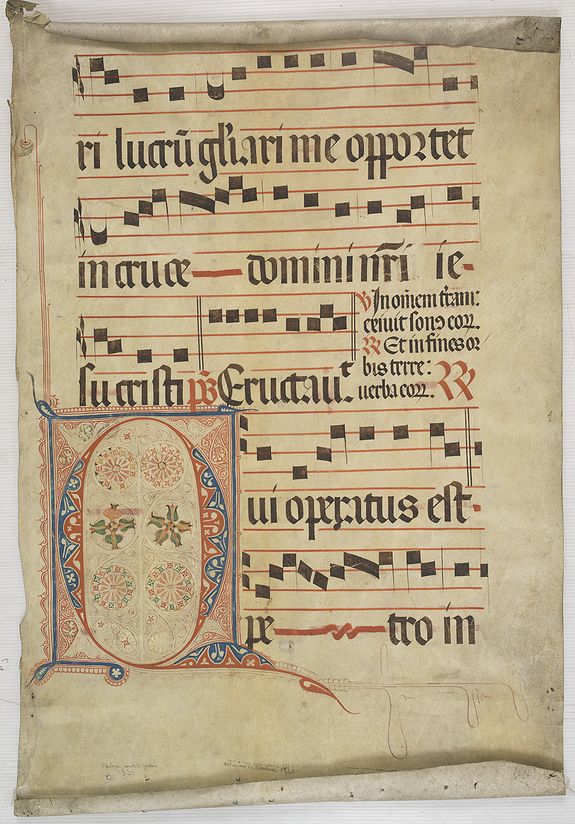 ri lucrū gl̄iari me opportet
in cruce domini nr̄i ie-
su cristi ps̄ Eructauit
V In om̄em terram:
exiuit sonꝰ eoꝝ.
R Et in fines or
bis terre:
uerba eoꝝ. R
Qui operatus est
pe tro in